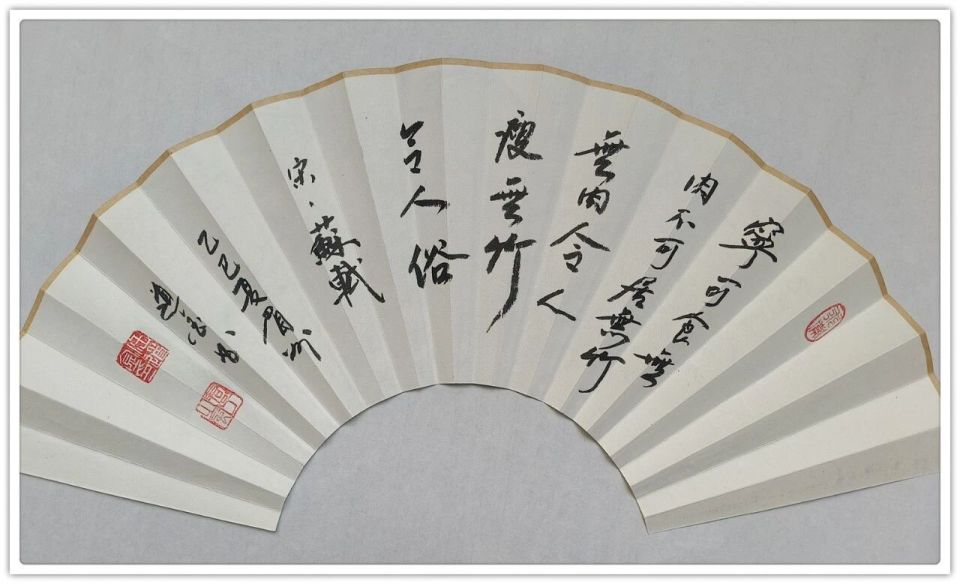 寧可食無
肉不可居無竹
無肉令人
瘦無竹
令人俗
宋·蘇軾
乙巳夏